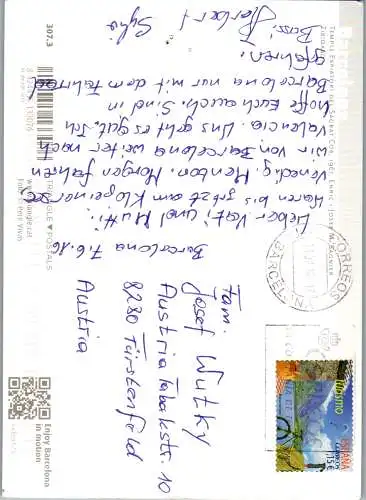 Barcelona 7.6.16
Lieber Vati und Mutti!
Waren bis jetzt am Klopeinersee
Venedig. Menton. Morgen fahren
wir von Barcelona weiter nach
Valencia. Uns geht es gut. Ich
hoffe Euch auch. Sind in
Barcelona nur mit dem Fahrrad
gfahren.
Bussi Herbert
Sylvia
Fam.
Josef Wutky
Austria Tabakstr. 10
8280 Fürstenfeld
Austria
307.3
TEMPLE EXPIATORI DEL SAGRAT COR
TRIANGLE ▼ POSTALS
Foto: © Pere Vivas
Enjoy Barcelona
in motion
CORREOS
BARCELONA
turismo
ESPAÑA
CORREOS